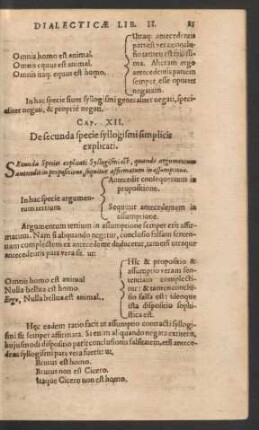 DIALECTICÆ LIB. II. 85
Utraq; antecedentis
pars est vera:
Omnis homo est animal.
Omnis equus est animal.
Omnis itaq. equus est homo.
antecedentis partem
semper, esse oportet
negatam.
In hac specie sunt syllogismi generaliter negati, speci-
aliter negati, & proprie negati.
CAP. XII.
De secunda specie syllogismi simplicis
explicati.
Secunda Species explicati Syllogismi est, quando argumentum
antecedit in propositione, sequitur affirmatum in assumptione.
Antecedit consequentem in
propositione.
In hac specie argumen-
tum tertium
Sequitur antecedentem in
assumptione.
Argumentum tertium in assumptione semper erit affir-
matum. Nam si aliquando negatur, conclusio falsam senten-
tiam complectens ex antecedente deducetur, tametsi utraque
antecedentis pars vera sit. ut:
Hîc & propositio
& assumptio veram sen-
tentiam complecti-
tur: & tamen conclu-
sio falsa est: idenque
ista dispositio sophi-
stica est.
Omnis homo est animal
Nulla bellua est homo.
Ergo, Nulla bellua est animal.
Hæc eadem ratio facit ut assumptio contracti syllogi-
smi sit semper affirmata. Si enim aliquando negata exiterit,
hujusmodi dispositio parit conclusionis falsitatem, etsi antece-
dens syllogismi pars vera fuerit: ut,
Brutus est homo.
Brutus non est Cicero.
Itaque Cicero non est homo.